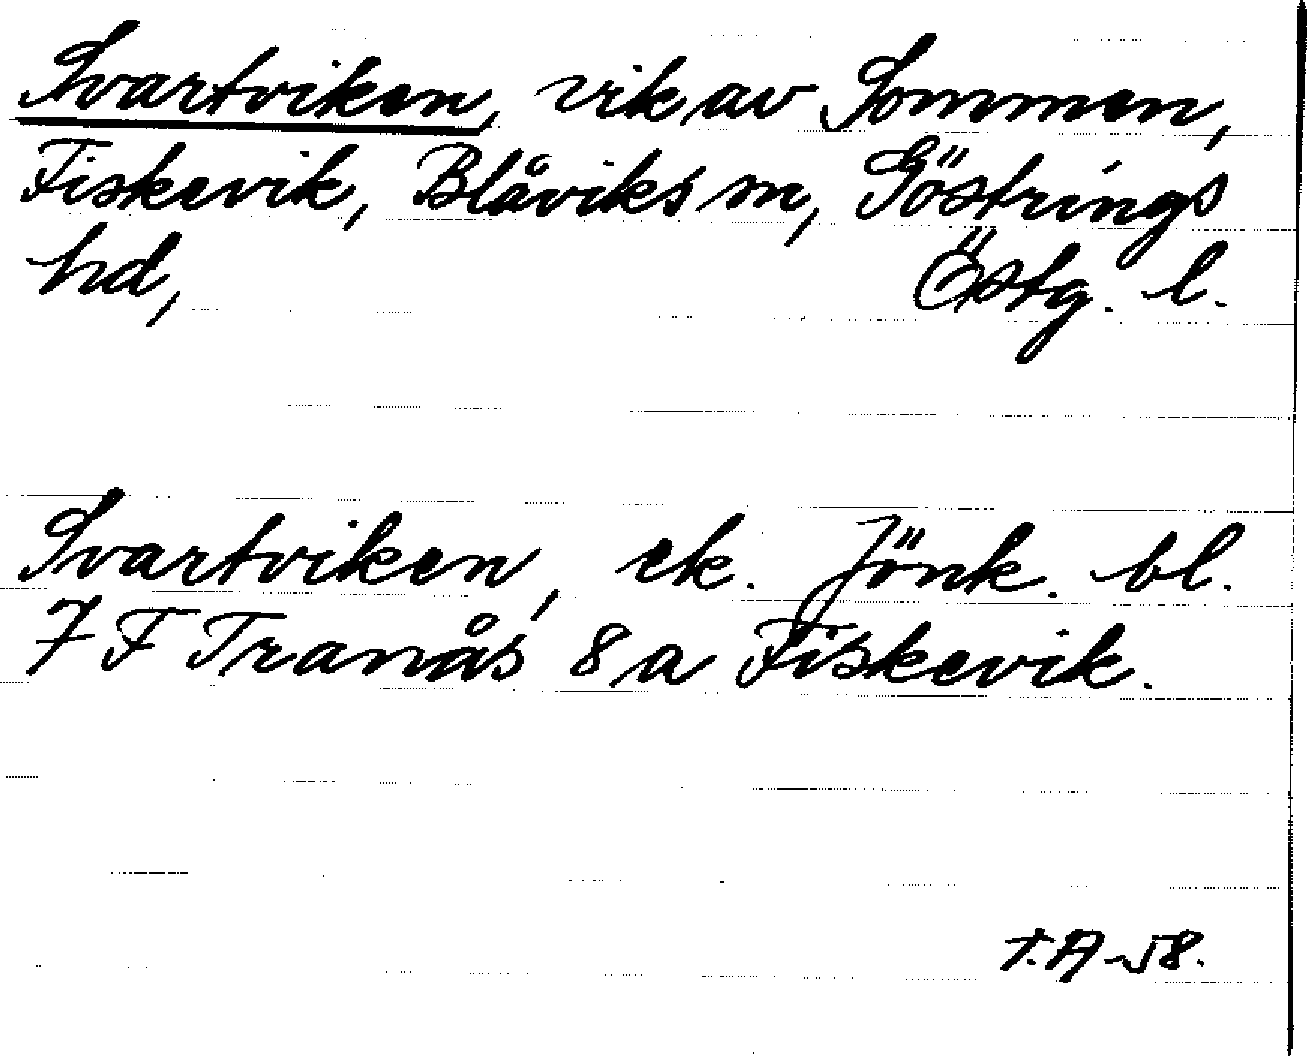 Svartviken, vik av Sommen,
Fiskevik, Blåviks sn, Göstrings
hd, Östg. l.
Svartviken, ek. Jönk. bl.
7 F Tranås 8 a Fiskevik.
T.A-58.